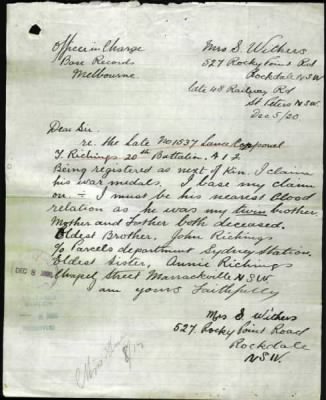 Officer in Charge
Base Records
Melbourne
Mrs S. Withers
527 Rocky Point Rd
Rockdale NSW
late 48 Railway Rd
St Peters NSW
Dec 5/20
Dear Sir.
re. the late No 1537 Lance Corporal
T. Richings 20th Battalion. A I F.
Being registered as next of Kin. I claim
his war medals. I base my claim
on - I must be his nearest blood
relation as he was my twin brother.
Mother and Father both deceased.
Eldest Brother. John Richings
c/o Parcels department Sydney Station.
Eldest Sister, Annie Richings
Chapel Street Marrackville NSW.
I am yours Faithfully
Mrs S Withers
527 Rocky Point Road
Rockdale
NSW.
DEC 8